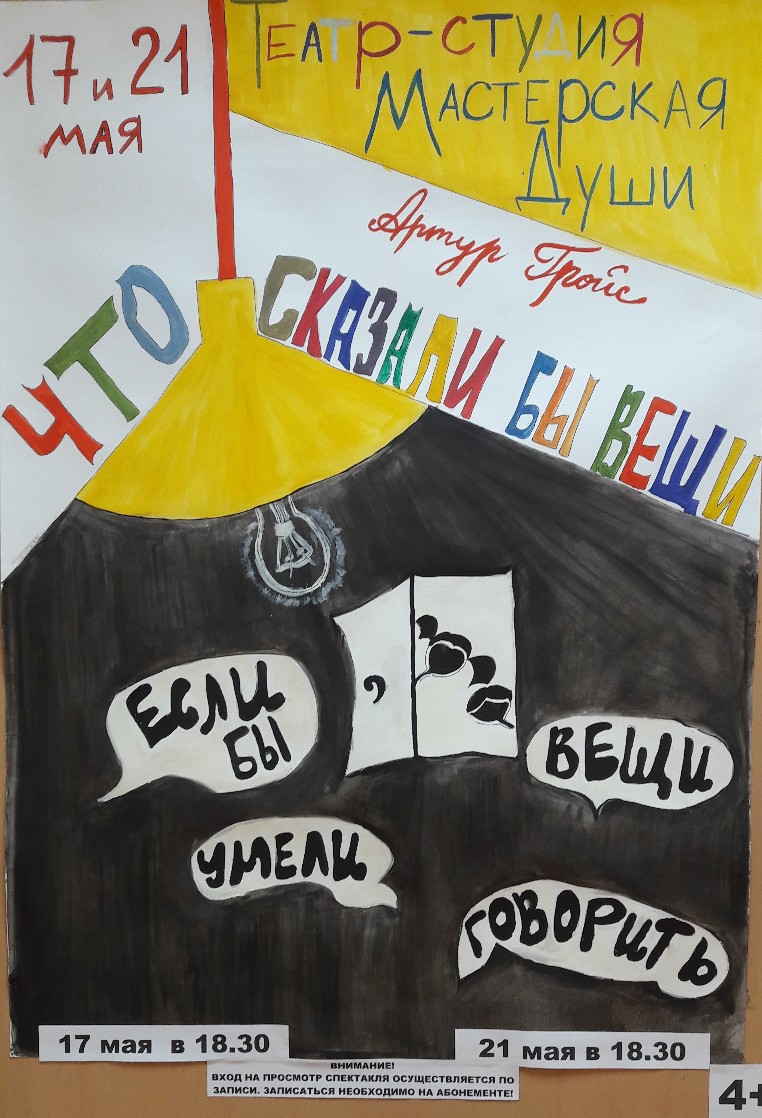 17 и 21
мая
Театр-студия
Мастерская
Души
Артур Гройс
ЧТО СКАЗАЛИ БЫ ВЕЩИ
ЕСЛИ
БЫ
ВЕЩИ
УМЕЛИ
ГОВОРИТЬ
17 мая в 18.30
21 мая в 18.30
ВНИМАНИЕ!
ВХОД НА ПРОСМОТР СПЕКТАКЛЯ ОСУЩЕСТВЛЯЕТСЯ ПО
ЗАПИСИ. ЗАПИСАТЬСЯ НЕОБХОДИМО НА АБОНЕМЕНТЕ!
4+